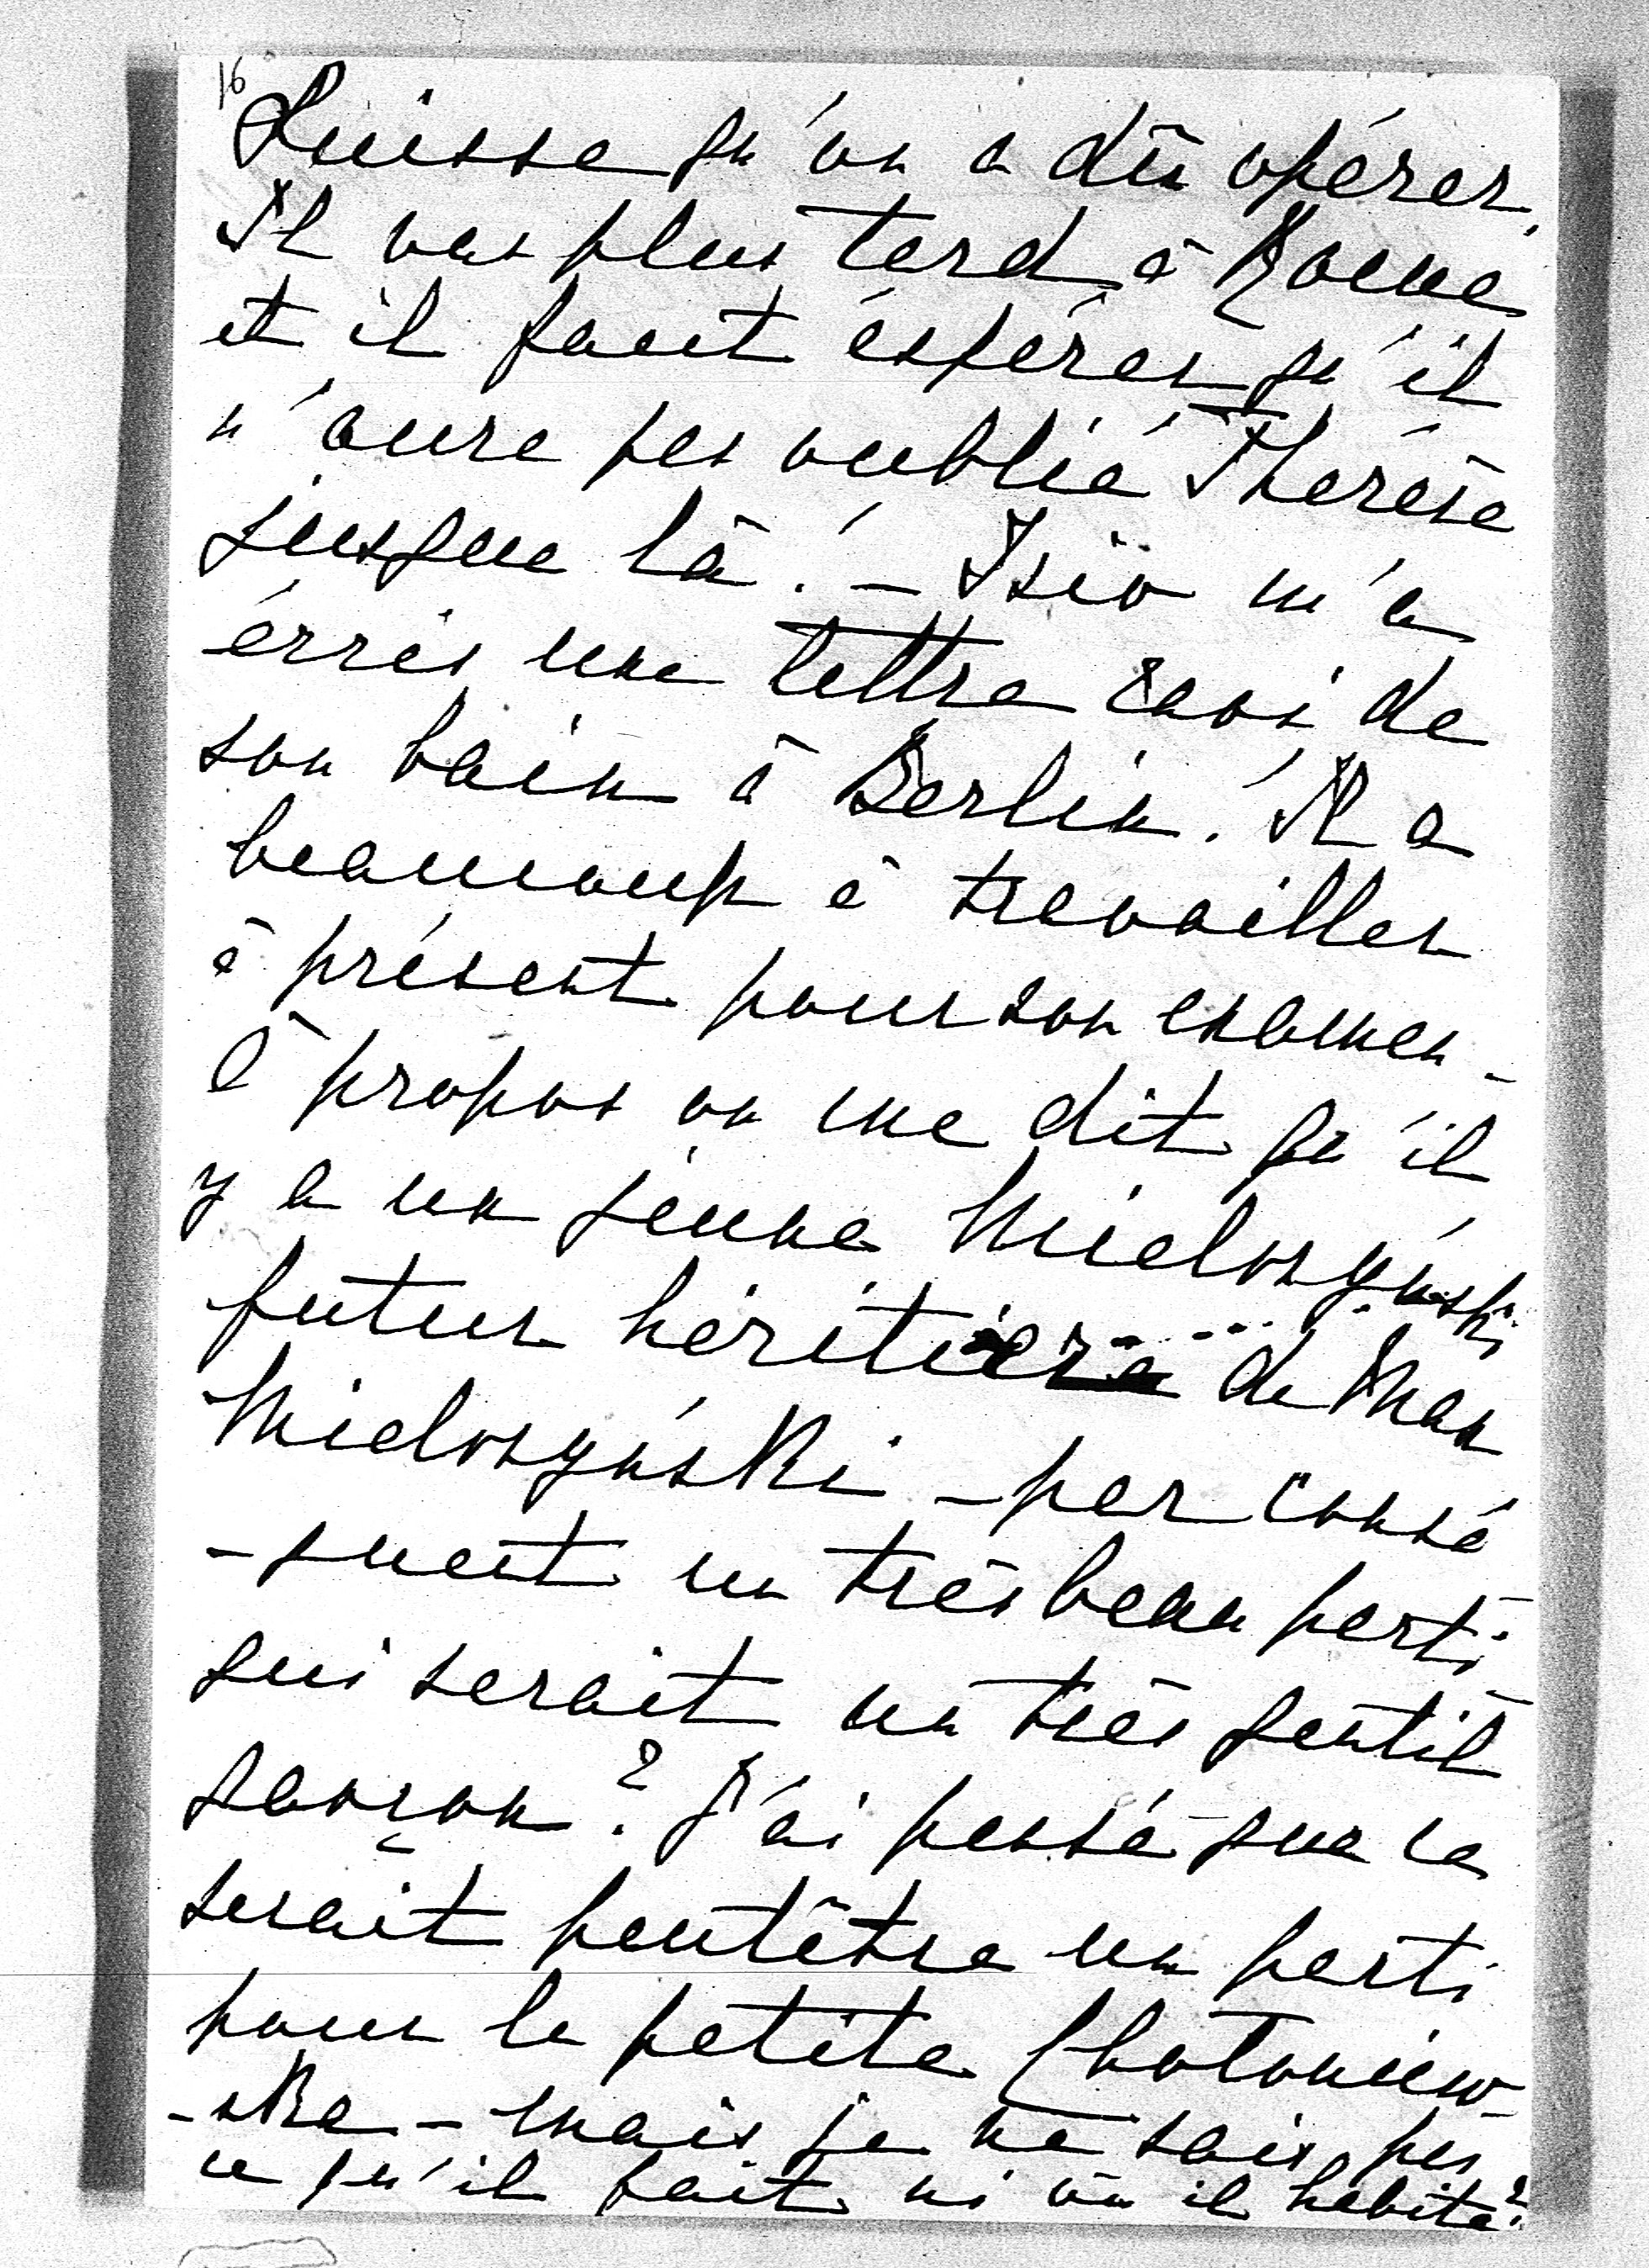 16
Suisse qu'on a dû opérer.
Il vas plus tard à Rome
et il faut éspérer qu'il
n'aura pas oublié Thérèse
jusque là! – Izio m'a
écris une lettre
son bain à Berlin! Il a
beaucoup à travailler
à présent pour son examen –
à propos on me dit qu'il
y a un jeune Mielżyński
futur héritier de Max
Mielżyński – par consé
-quent un très beau parti
qui serait un très gentil
garçon? J'ai pensé que ce
serait peutêtre un parti
pour la petite Chłoniew-
-ska – mais je ne sais pas
ce qu'il fait ni où il habite?